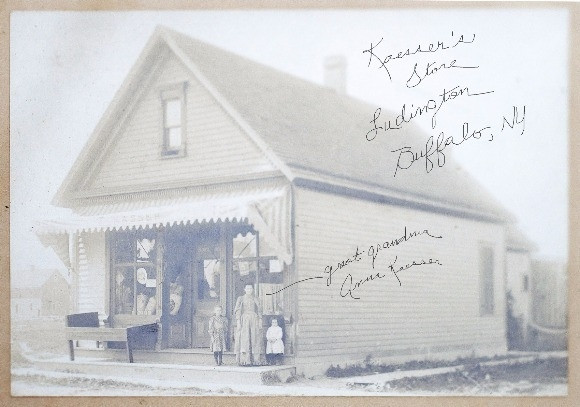 Kaesser's
Store
Ludington
Buffalo, NY
great grandma
Anna Kaesser